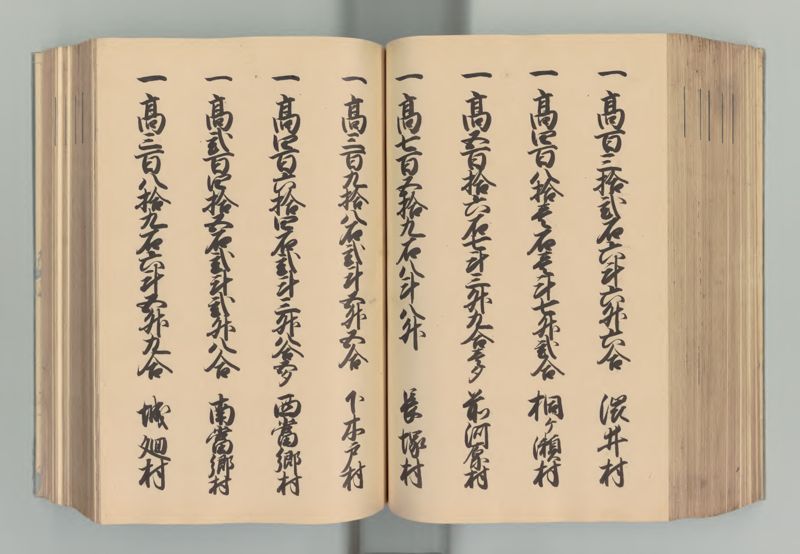 一高百三拾弐石六斗六舛六合 深井村
一高四百八拾壱石壱斗七舛弐合 桐ヶ瀬村
一高五百拾六石七斗三舛九合壱夕 前河原村
一高七百五拾九石八斗八舛 長塚村
一高三百九拾八石弐斗五舛五合 下木戸村
一高四百六拾四石弐斗三舛八合壱夕 西當郷村
一高弐百四拾五石弐斗弐舛八合 南當郷村
一高三百八拾九石六斗五舛九合 城廻村